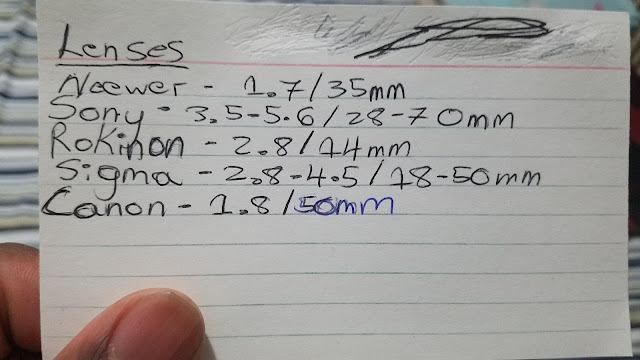 Lenses
Neewer - 1.7/35mm
Sony - 3.5-5.6/28-70mm
Rokinon - 2.8/14mm
Sigma - 2.8-4.5/18-50mm
Canon - 1.8/50mm